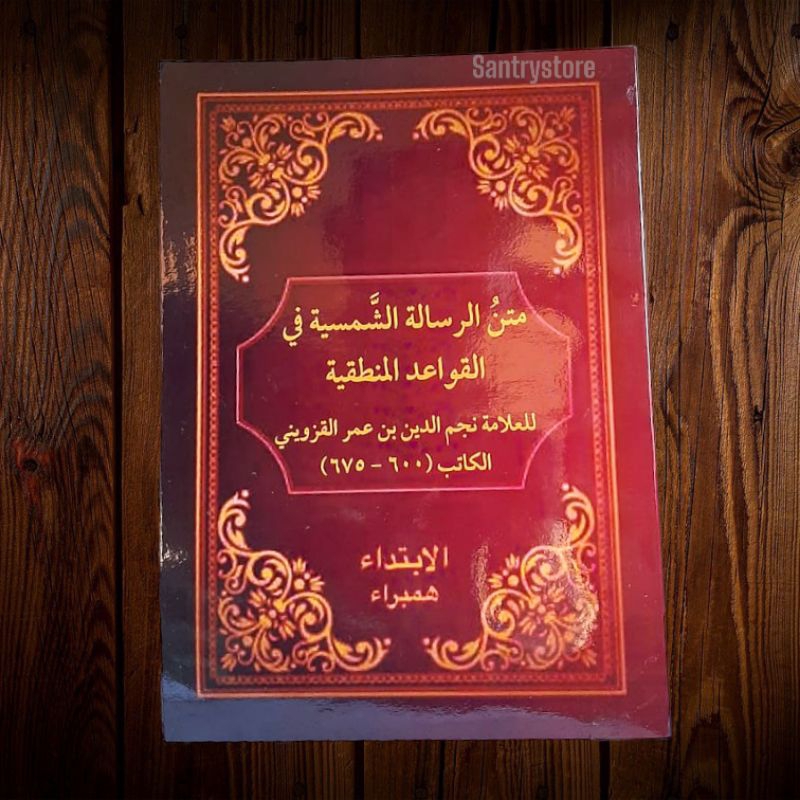 Santrystore
متنُ الرسالة الشَّمسية في
القواعد المنطقية
للعلامة نجم الدين بن عمر القزويني
الكاتب (٦٠٠ - ٦٧٥)
الابتداء
همبراء